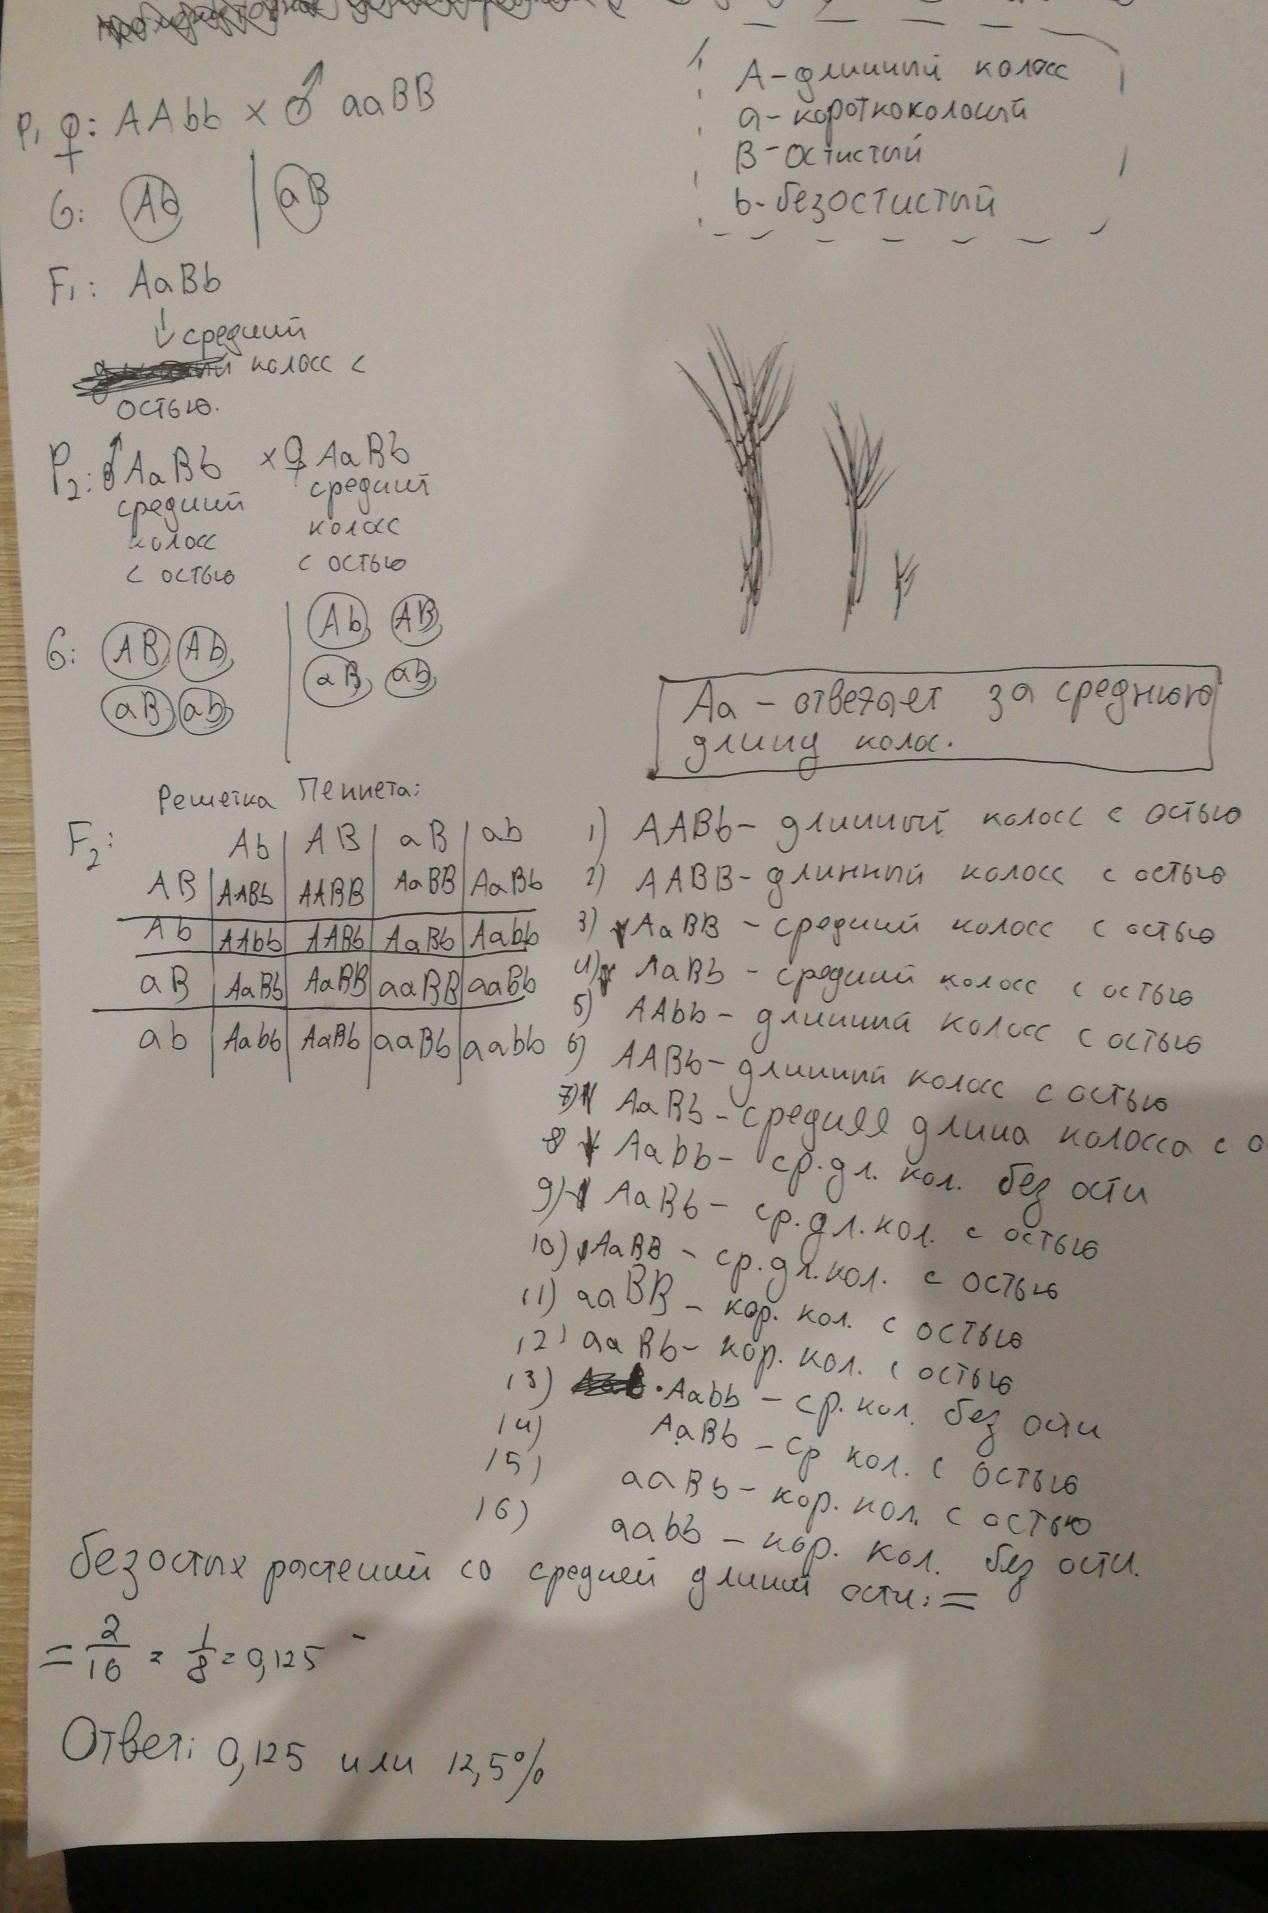 А - длинный колосс
а - короткоколосый
В - остистый
b - безостистый
P1 ♀: AAbb × ♂ aaBB
G: Ab | aB
F1: AaBb
↓ средний
колосс с
остью.
P2: ♂ AaBb × ♀ AaBb
средний средний
колосс колосс
с остью с остью
G: AB Ab | Ab AB
aB ab | aB ab
Аа - отвечает за среднюю
длину колос.
Решетка Пеннета:
F2: Ab | AB | aB | ab
AB | AABb | AABB | AaBB | AaBb
Ab | AAbb | AABb | AaBb | Aabb
aB | AaBb | AaBB | aaBB | aaBb
ab | Aabb | AaBb | aaBb | aabb
1) AABb - длинный колосс с остью
2) AABB - длинный колосс с остью
3) AaBB - средний колосс с остью
4) AaBb - средний колосс с остью
5) AAbb - длинный колосс с остью
6) AABb - длинный колосс с остью
7) AaBb - средняя длина колосса с о
8 Aabb - ср. дл. кол. без ости
9) AaBb - ср. дл. кол. с остью
10) AaBB - ср. дл. кол. с остью
11) aaBB - кор. кол. с остью
12) aaBb - кор. кол. с остью
13) Aabb - ср. кол. без ости
14) AaBb - ср кол. с остью
15) aaBb - кор. кол. с остью
16) aabb - кор. кол. без ости.
безостых растений со средней длиной ости: =
= 2/16 = 1/8 = 0,125
Ответ: 0,125 или 12,5%